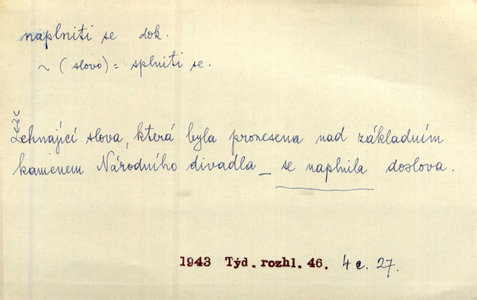 naplniti se dok.
~ (slovo) = splniti se.
Žehnající slova, která byla pronesena nad základním
kamenem Národního divadla – se naplnila doslova.
1943 Týd. rozhl. 46. 4 c. 27.